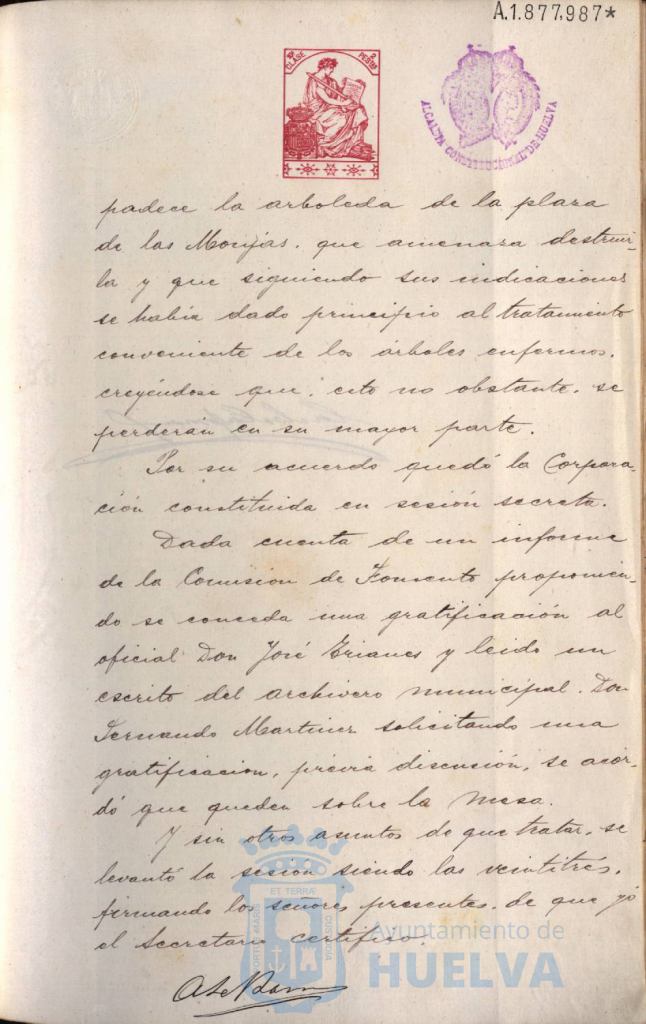 A.1.877,987*
10ª CLASE 2 PESETAS
ALCALDIA CONSTITUCIONAL DE HUELVA
padece la arboleda de la plaza
de las Monjas, que amenaza destruir-
la y que siguiendo sus indicaciones
se había dado principio al tratamiento
conveniente de los árboles enfermos,
creyéndose que, esto no obstante, se
perderán en su mayor parte.
Por su acuerdo quedó la Corpora-
ción constituida en sesión secreta.
Dada cuenta de un informe
de la Comisión de Fomento proponien-
do se conceda una gratificación al
oficial Don José Trianes y leido un
escrito del archivero municipal, Don
Fernando Martinez solicitando una
gratificacion, previa discusión, se acor-
dó que queden sobre la mesa.
Y sin otros asuntos de que tratar, se
levantó la sesión siendo las veintitrés,
firmando los señores presentes, de que yó
el Secretario certifico.
PORTUS MARIS ET TERRAE CUSTODIA
Ayuntamiento de
HUELVA